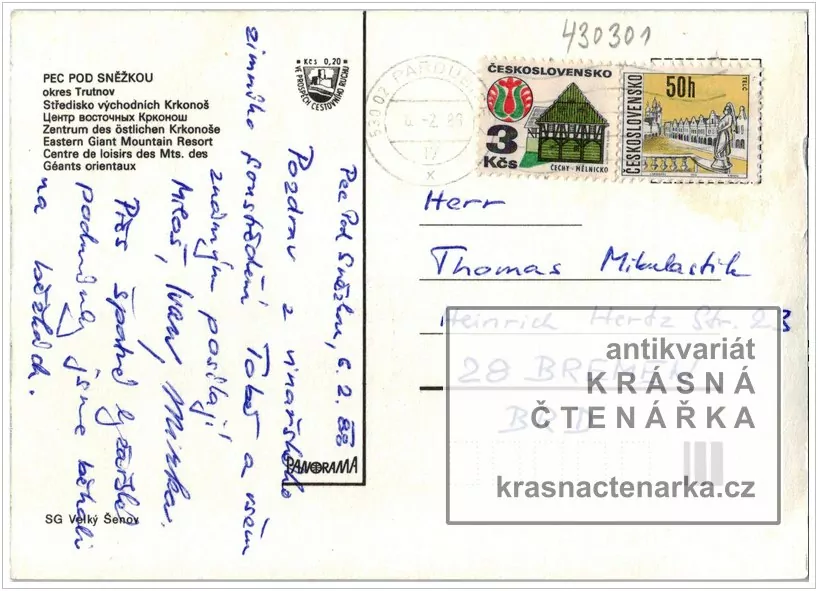 430301
PEC POD SNĚŽKOU
okres Trutnov
Středisko východních Krkonoš
Центр восточных Крконош
Zentrum des östlichen Krkonoše
Eastern Giant Mountain Resort
Centre de loisirs des Mts. des
Géants orientaux
Kčs 0,20
VE PROSPĚCH CESTOVNÍHO RUCHU
530 02 PARDUBICE
6.-2.88
ČESKOSLOVENSKO
3
Kčs
ČECHY - MĚLNICKO
50h
TELČ
ČESKOSLOVENSKO
Pec Pod Sněžkou, 6. 2. 88
Pozdrav z vinařského
zimního soustředění Tobě a všem
známým posílají
Miloš, Ivan, Mirka.
Přes špatné lyžařské
podmínky jsme běhali
na běžkách.
Herr
Thomas Mikulastik
Heinrich Hertz Str.
28 BREMEN
BRD
PANORAMA
SG Velký Šenov
antikvariát
KRÁSNÁ
ČTENÁŘKA
krasnactenarka.cz